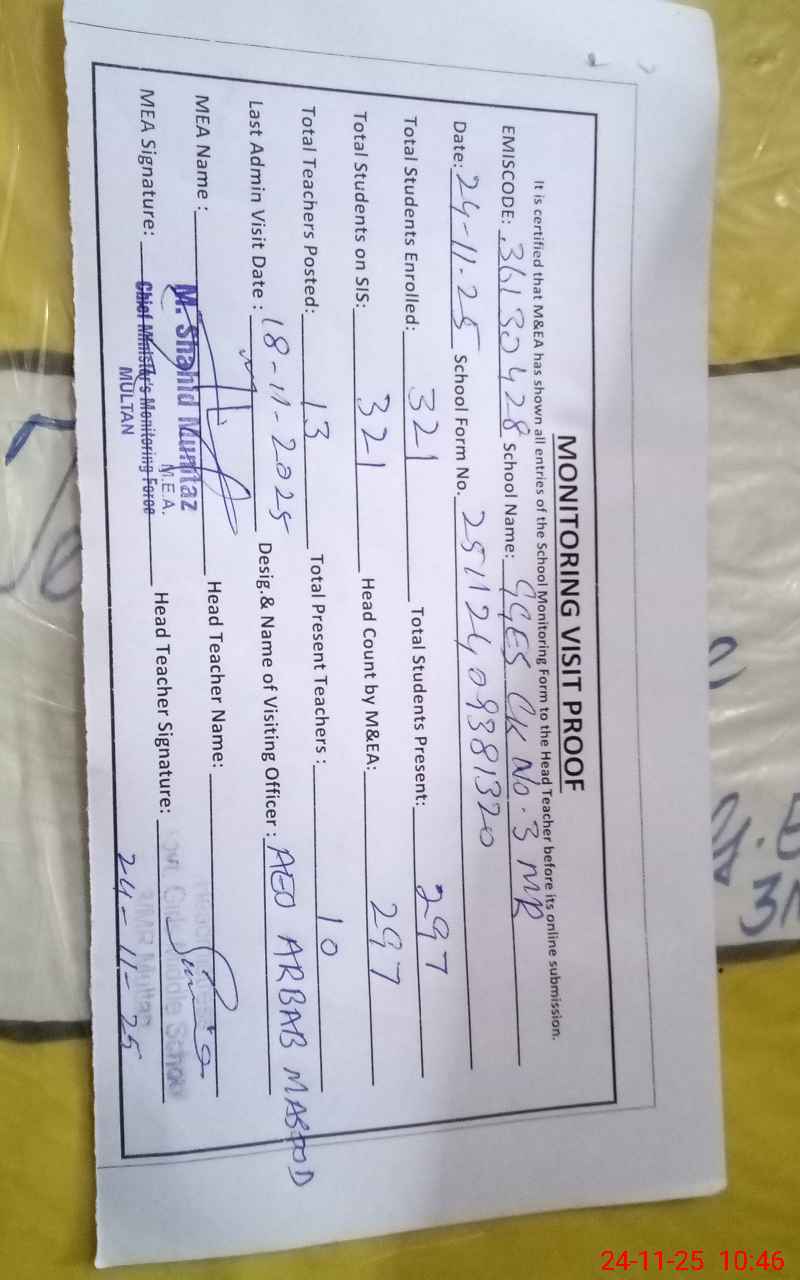 MONITORING VISIT PROOF
It is certified that M&EA has shown all entries of the School Monitoring Form to the Head Teacher before its online submission.
EMISCODE: 36130428 School Name: GGES CK No. 3 MR
Date: 24-11-25 School Form No. 25112409381320
Total Students Enrolled: 321 Total Students Present: 297
Total Students on SIS: 321 Head Count by M&EA: 297
Total Teachers Posted: 13 Total Present Teachers : 10
Last Admin Visit Date : 18-11-2025 Desig.& Name of Visiting Officer : AEO ARBAB MASOOD
MEA Name : Head Teacher Name:
M. Shahid Mumtaz
M.E.A.
MEA Signature: Head Teacher Signature:
Chief Minister's Monitoring Force
MULTAN
Middle School
Multan
24-11-25
24-11-25 10:46